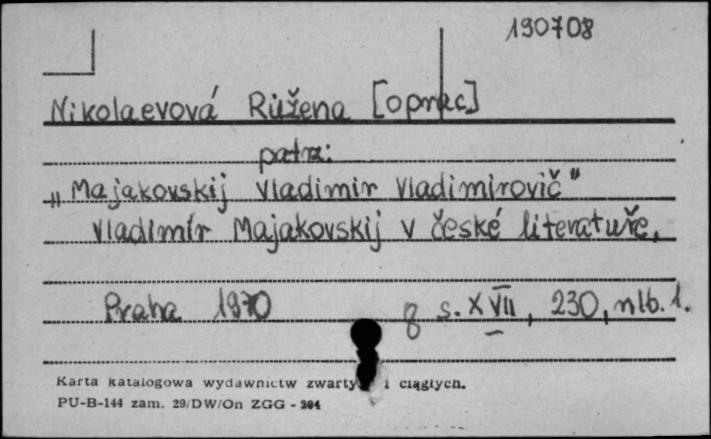 190708
Nikolaevová Růžena [oprac]
patrz:
„Majakovskij Vladimir Vladimirovič"
Vladimír Majakovskij v české literatuře.
Praha 1970 8 s. XVII, 230, nlb. 1.
Karta katalogowa wydawnictw i ciągłych.
PU-B-144 zam. 29/DW/On ZGG - 394